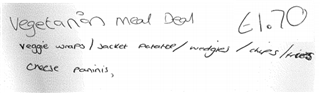 Vegetarian Meal Deal £1.70
Veggie wraps / Jacket Potatoe / wedgies / chips / rices
cheese paninis,